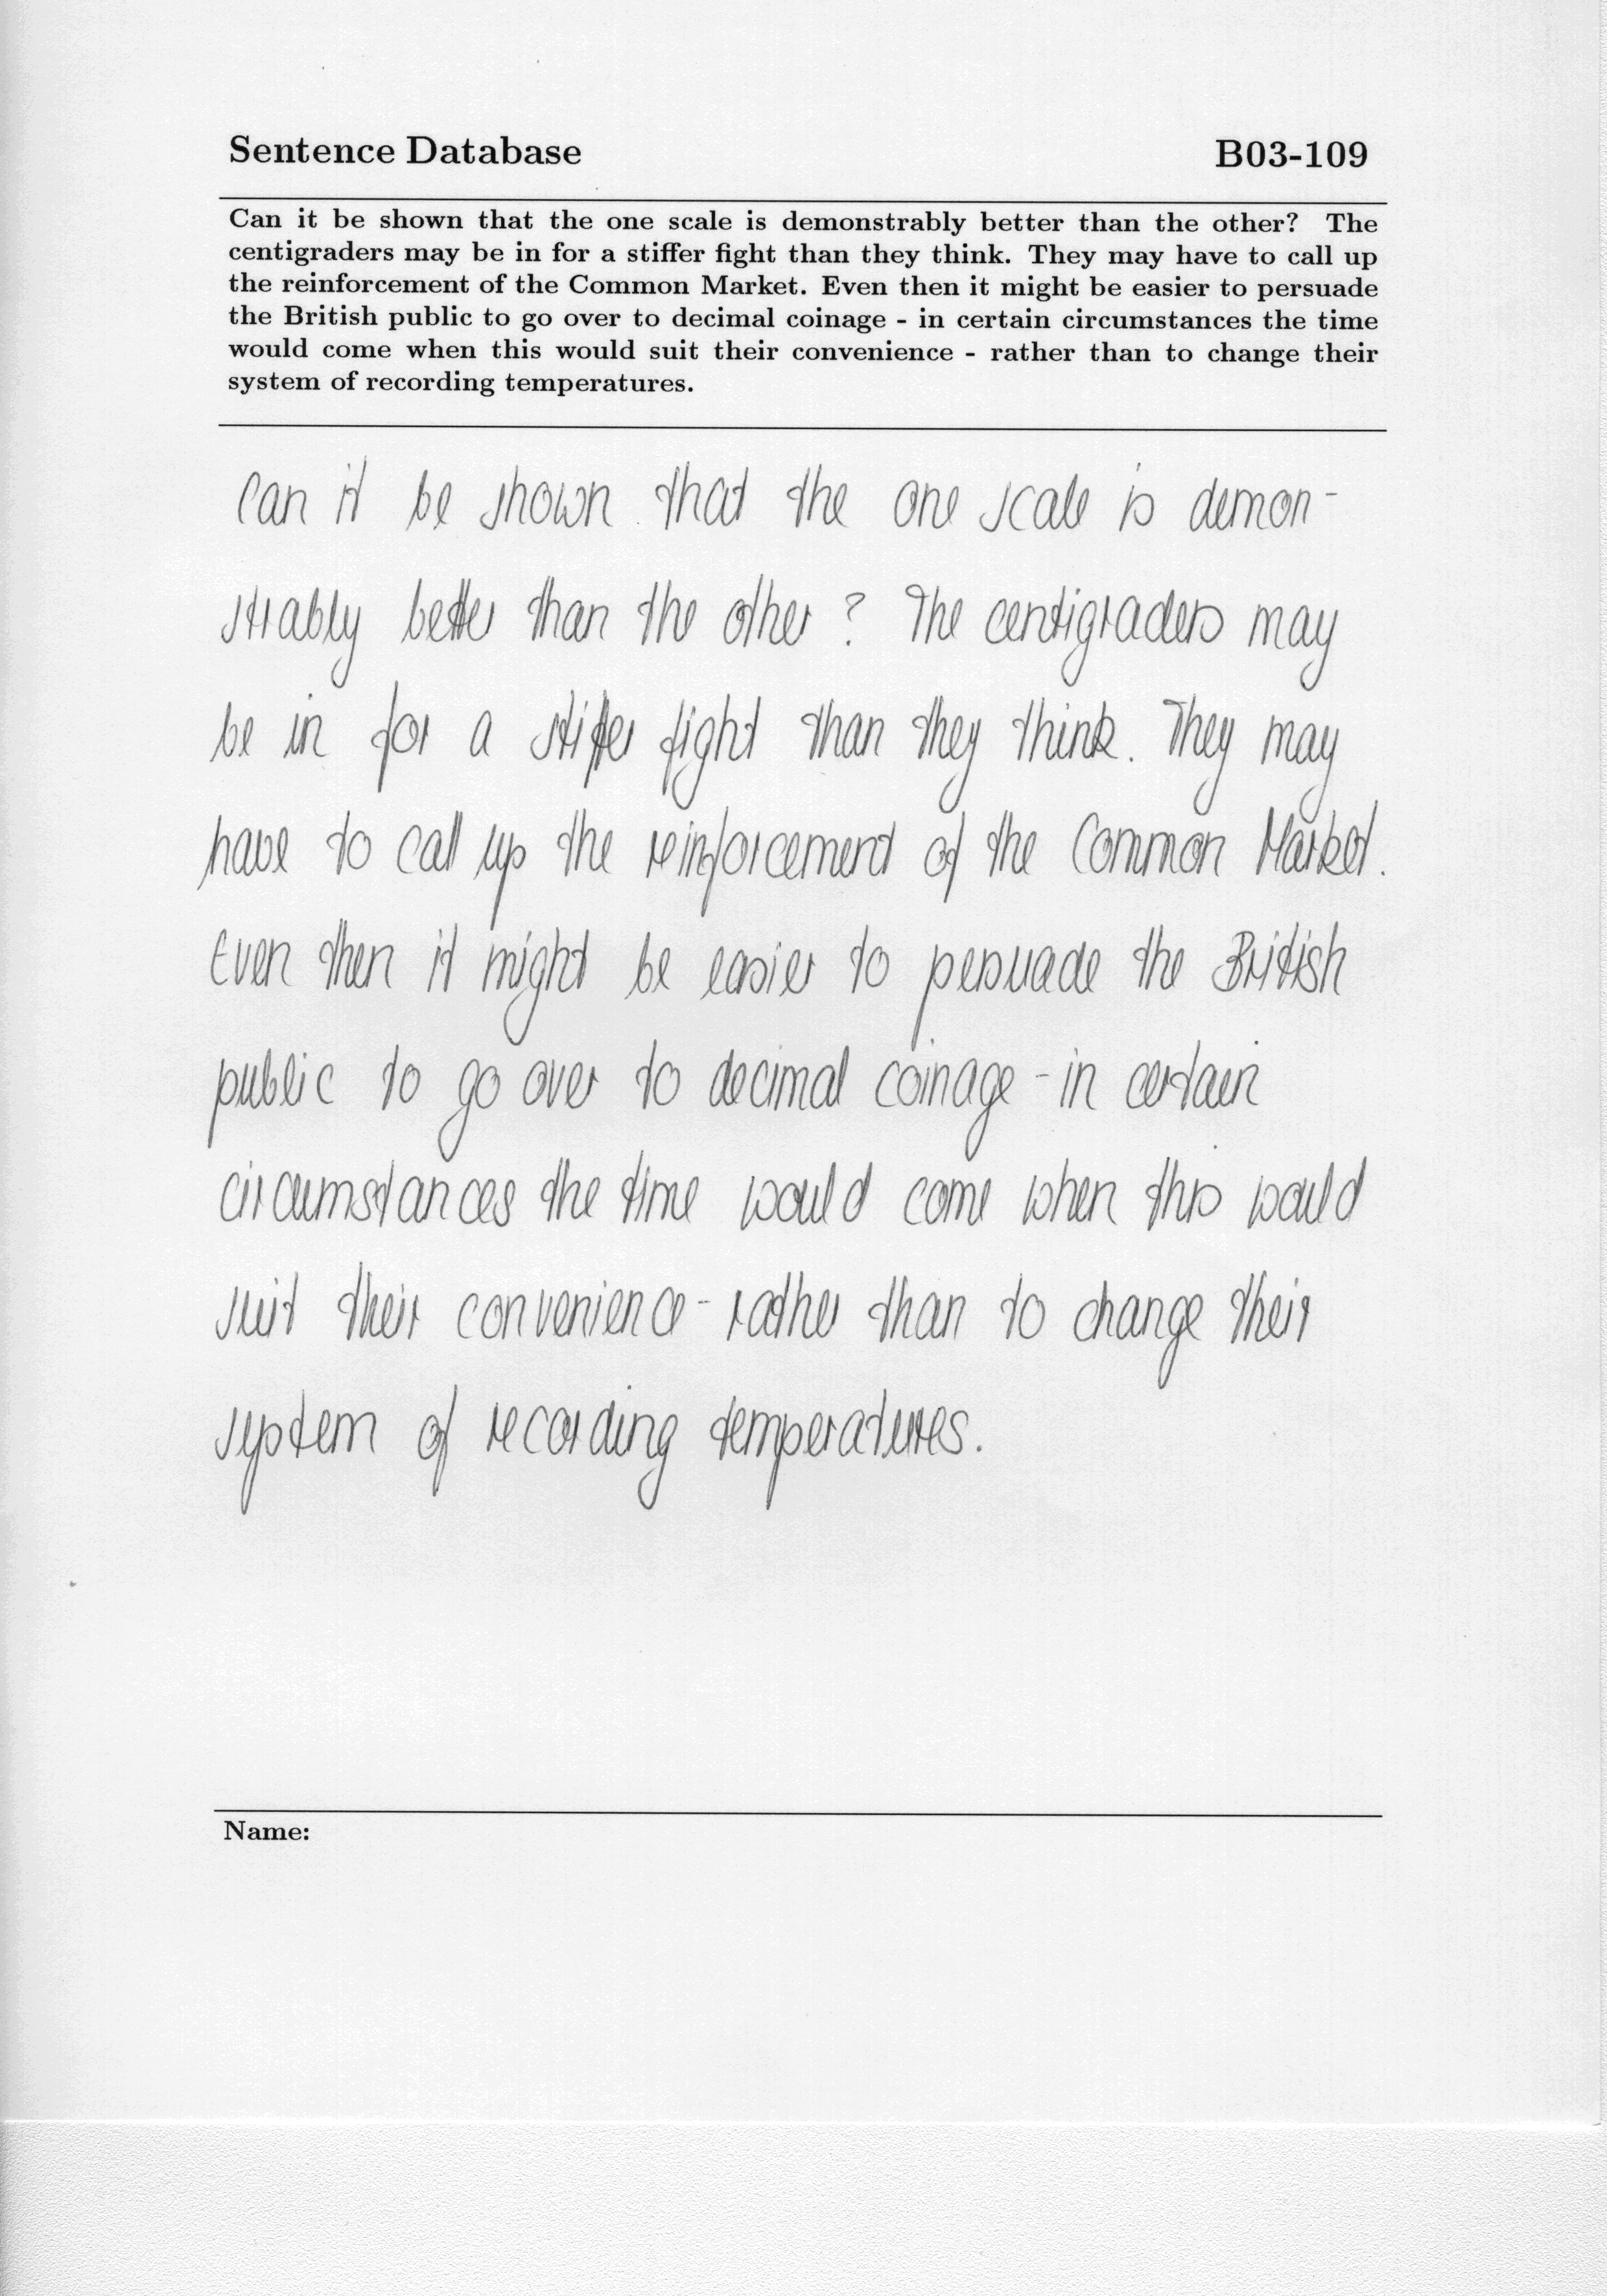 Sentence Database B03-109
Can it be shown that the one scale is demonstrably better than the other? The
centigraders may be in for a stiffer fight than they think. They may have to call up
the reinforcement of the Common Market. Even then it might be easier to persuade
the British public to go over to decimal coinage - in certain circumstances the time
would come when this would suit their convenience - rather than to change their
system of recording temperatures.
Can it be shown that the one scale is demon-
strably better than the other ? The centigraders may
be in for a stiffer fight than they think. They may
have to call up the reinforcement of the Common Market.
Even then it might be easier to persuade the British
public to go over to decimal coinage - in certain
circumstances the time would come when this would
suit their convenience - rather than to change their
system of recording temperatures.
Name: